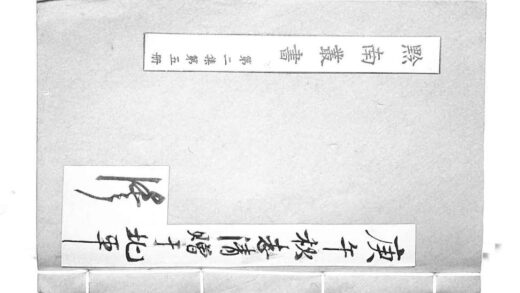 黔南叢書 第二集第五册
庚午秋志清贈于北平